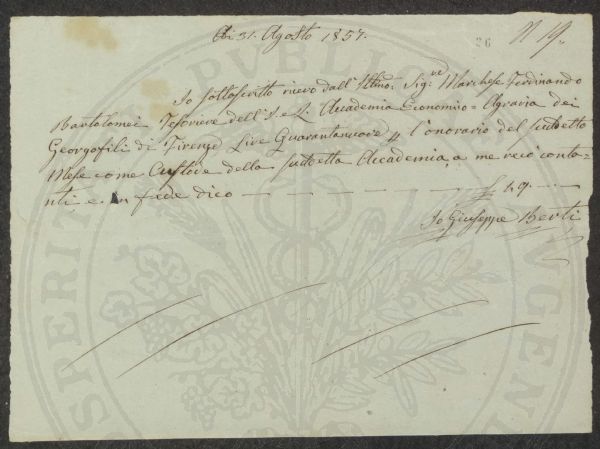 Adi 31. Agosto 1857.
26
N 19.
Io sottoscritto ricevo dall' Illmo: Sig:re Marchese Ferdinando
Bartolomei Tesoriere dell' I. e R. Accademia Economico = Agraria dei
Georgofili di Firenze Lire Quarantanove p l'onorario del suddetto
Mese come Custode della suddetta Accademia, a me reco conta=
nti e in fede dico — £ 49. —
Io Giuseppe Berti
PROSPERITATI PUBLICAE AUGENDAE